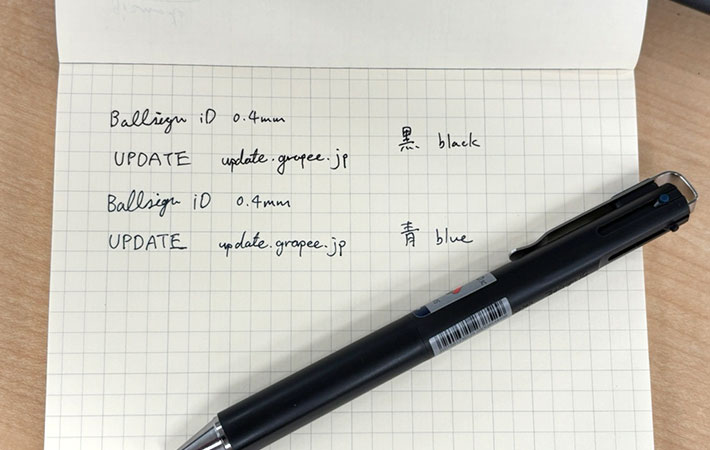 Ballsign iD 0.4mm
黒 black
UPDATE update.grapee.jp
Ballsign iD 0.4mm
UPDATE update.grapee.jp
青 blue